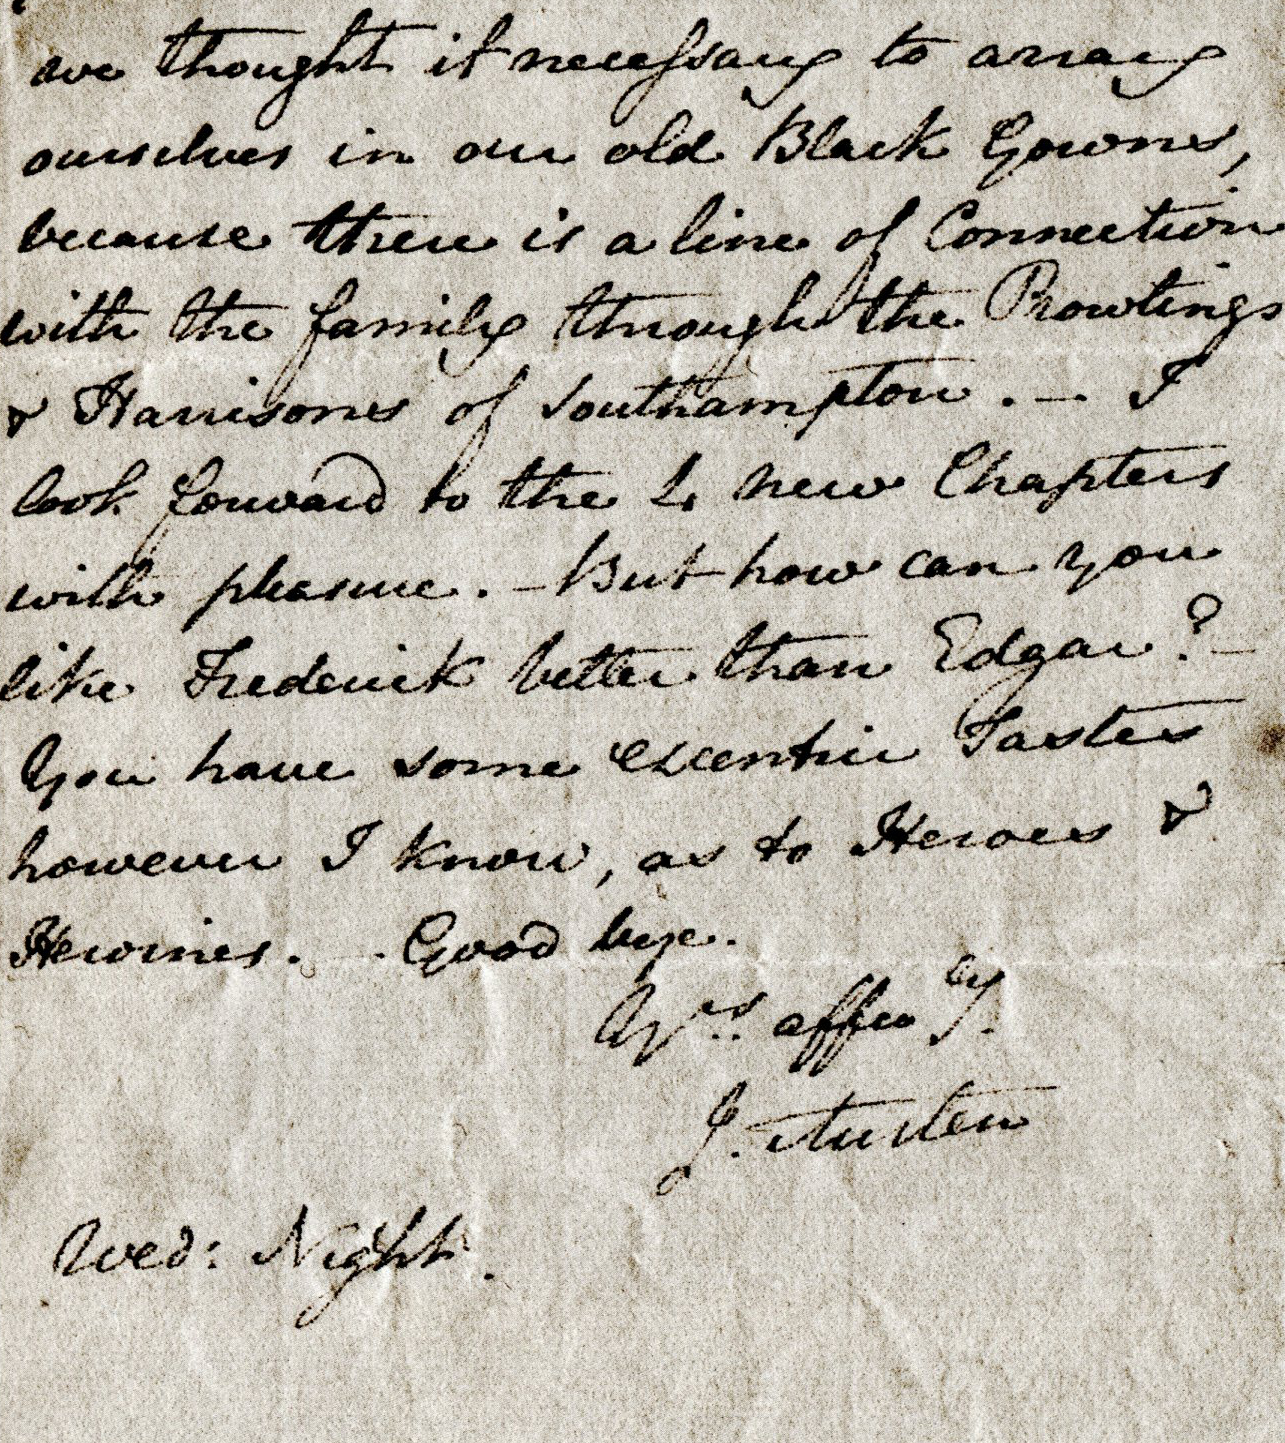 we thought it necessary to array
ourselves in our old Black Gowns,
because there is a line of Connection
with the family through the Prowtings
& Harrisons of Southampton. — I
look forward to the 4 new Chapters
with pleasure. — But how can you
like Frederick better than Edgar? —
You have some excentric Tastes
however I know, as to Heroes &
Heroines. — Good bye.
Yrs. affec:ly.
J. Austen
Wed: Night.